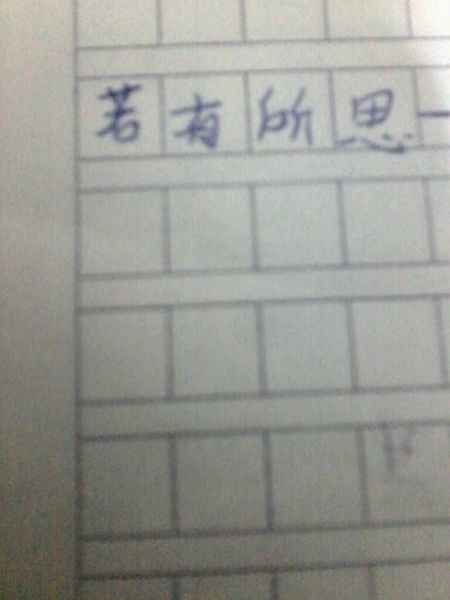 若有所思一